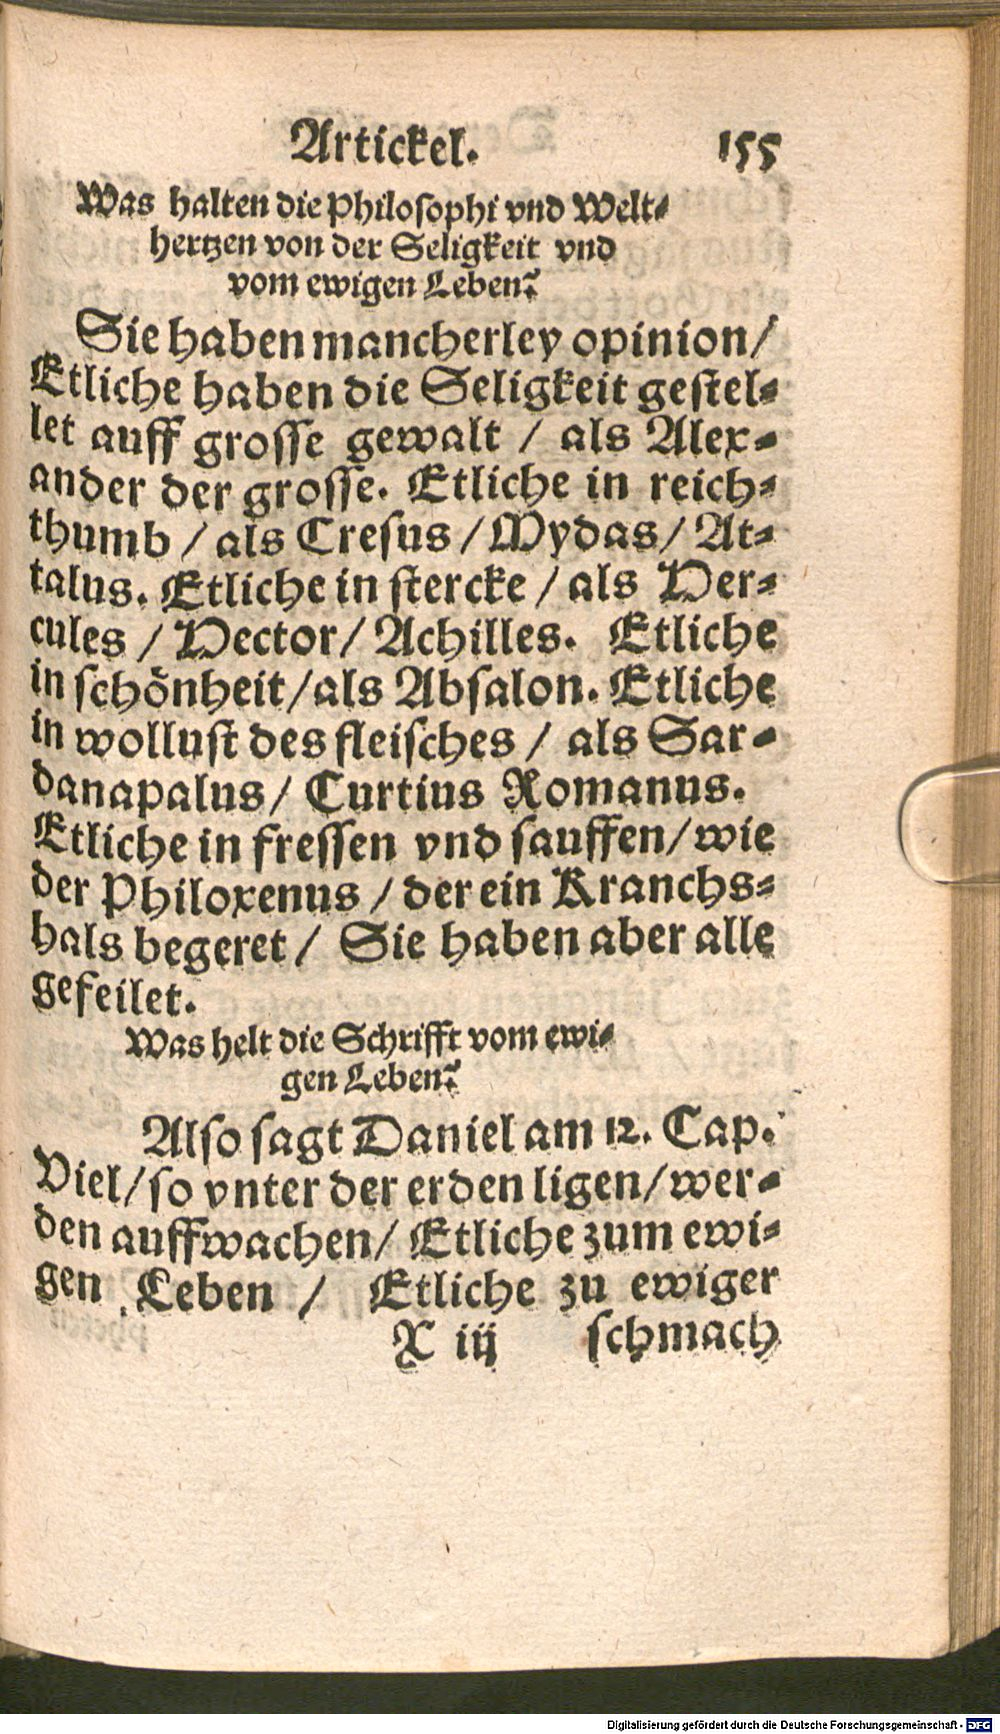 Artickel. 155
Was halten die Philosophi vnd Welt-
hertzen von der Seligkeit vnd
vom ewigen Leben?
Sie haben mancherley opinion/
Etliche haben die Seligkeit gestel-
let auff grosse gewalt / als Alex-
ander der grosse. Etliche in reich-
thumb / als Cresus / Mydas / At-
talus. Etliche in stercke / als Her-
cules / Hector / Achilles. Etliche
in schönheit / als Absalon. Etliche
in wollust des fleisches / als Sar-
danapalus / Curtius Romanus.
Etliche in fressen vnd sauffen / wie
der Philoxenus / der ein Kranchs-
hals begeret / Sie haben aber alle
gefeilet.
Was helt die Schrifft vom ewi-
gen Leben?
Also sagt Daniel am 12. Cap.
Viel / so vnter der erden ligen / wer-
den auffwachen / Etliche zum ewi-
gen Leben / Etliche zu ewiger
X iij schmach
Digitalisierung gefördert durch die Deutsche Forschungsgemeinschaft - DFG